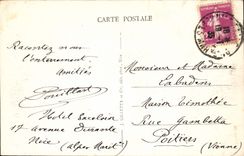 CARTE POSTALE
Racontez nous
l'enterrement
Amitiés
Hotel Excelsior
17 Avenue Durante
Nice (Alpes Marit)
Monsieur et Madame
Maison Timothée
Rue Gambetta
Poitiers
(Vienne)